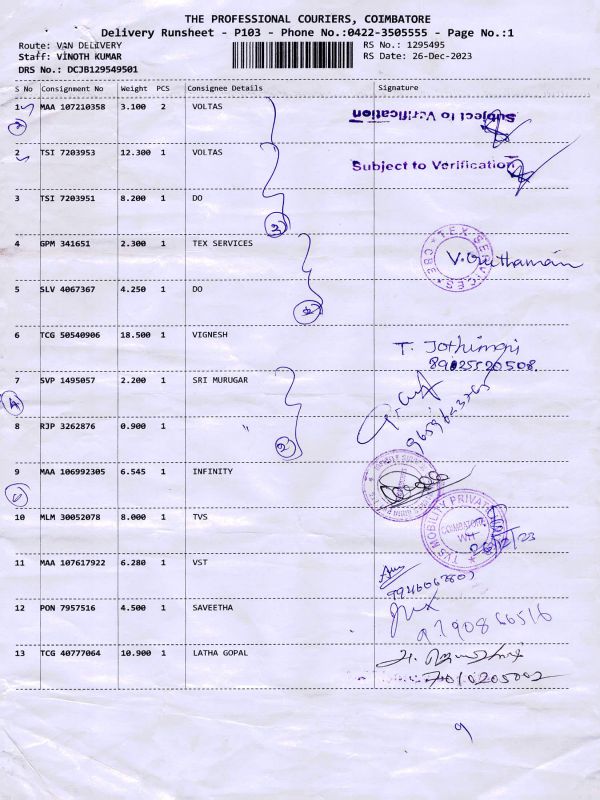 THE PROFESSIONAL COURIERS, COIMBATORE
Delivery Runsheet - P103 - Phone No.:0422-3505555 - Page No.:1
Route: VAN DELIVERY RS No.: 1295495
Staff: VINOTH KUMAR RS Date: 26-Dec-2023
DRS No.: DCJB129549501
S No Consignment No Weight PCS Consignee Details Signature
1 MAA 107210358 3.100 2 VOLTAS Subject to Verification
2 TSI 7203953 12.300 1 VOLTAS Subject to Verification
3 TSI 7203951 8.200 1 DO
4 GPM 341651 2.300 1 TEX SERVICES TEX SERVICES CBE V.
5 SLV 4067367 4.250 1 DO
6 TCG 50540906 18.500 1 VIGNESH T. Jothimani
7 SVP 1495057 2.200 1 SRI MURUGAR
8 RJP 3262876 0.900 1 "
9 MAA 106992305 6.545 1 INFINITY
10 MLM 30052078 8.000 1 TVS TVS MOBILITY PRIVATE COIMBATORE
11 MAA 107617922 6.280 1 VST
12 PON 7957516 4.500 1 SAVEETHA
9790866516
13 TCG 40777064 10.900 1 LATHA GOPAL
7010205002
9